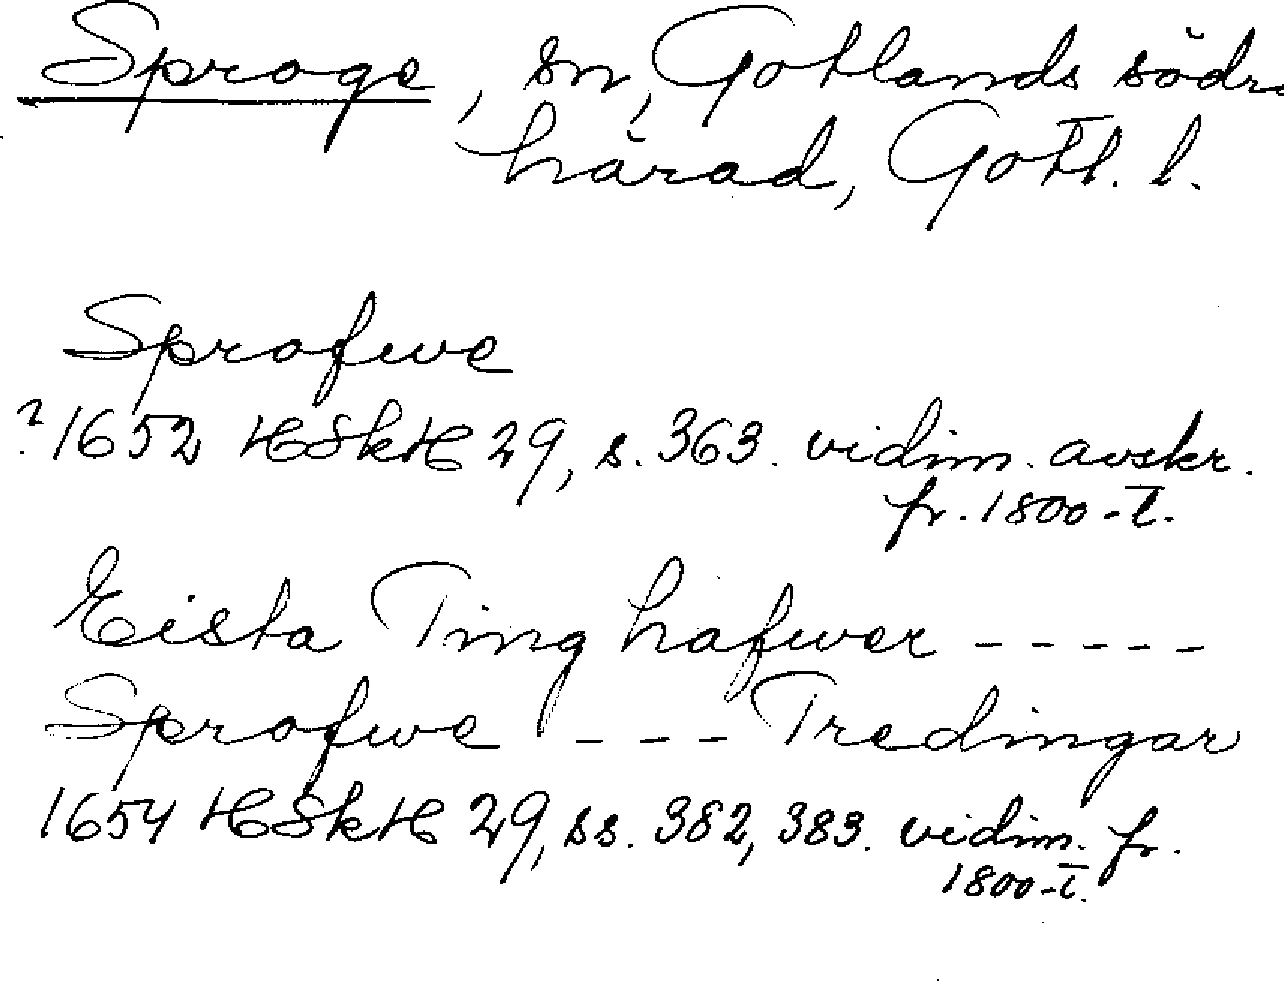 Sproge, sn, Gotlands södra
härad, Gotl. l.
Sprofwe
? 1652 HSkH 29, s. 363. vidim. avskr.
fr. 1800-t.
Eista Ting hafwer - - - - -
Sprofwe - - - Tredingar
1654 HSkH 29, ss. 382, 383. vidim. fr.
1800-t.